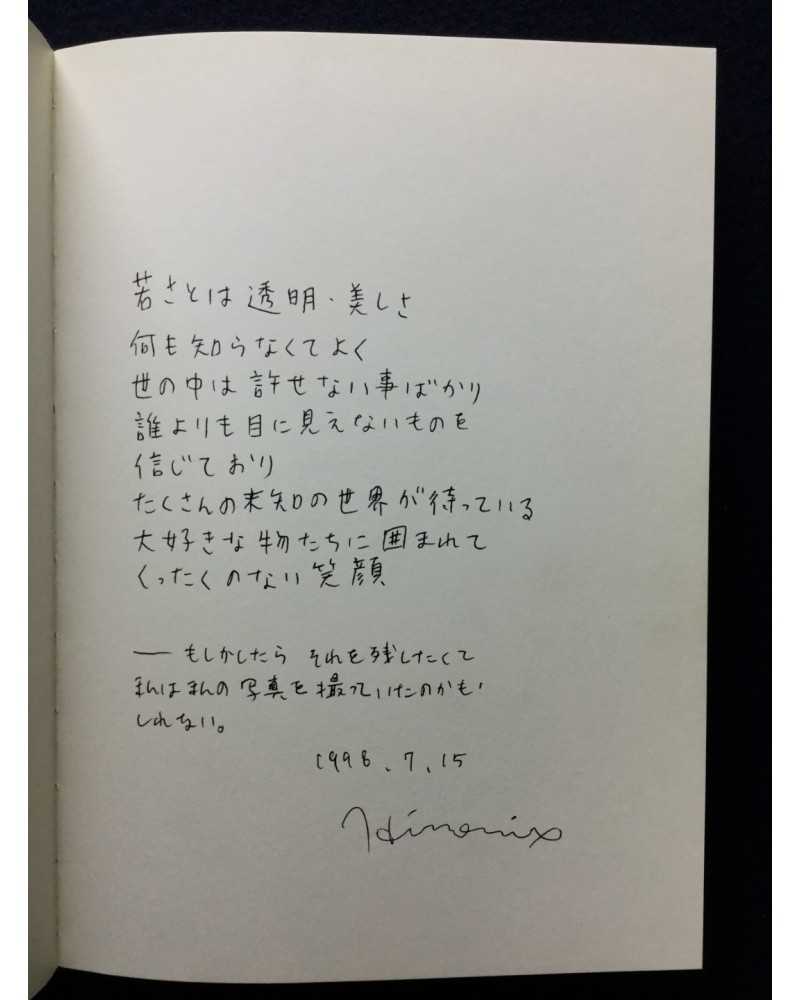 若さとは透明・美しさ
何も知らなくてよく
世の中は許せない事ばかり
誰よりも目に見えないものを
信じており
たくさんの未知の世界が待っている
大好きな物たちに囲まれて
くったくのない笑顔
― もしかしたら それを残したくて
私は私の写真を撮っていたのかも
しれない。
1998.7.15
Hiromix